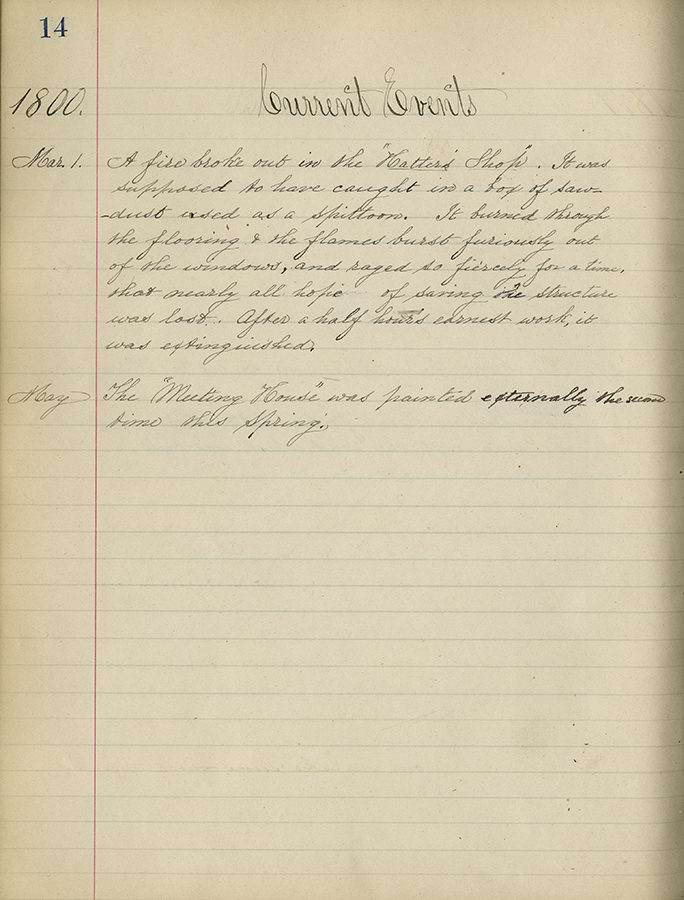 14
1800. Current Events
Mar. 1. A fire broke out in the "Hatter's Shop". It was
supposed to have caught in a box of saw-
-dust used as a spittoon. It burned through
the flooring & the flames burst furiously out
of the windows, and raged so fiercely for a time,
that nearly all hope of saving the structure
was lost. After a half hour's earnest work, it
was extinguished.
May The "Meeting House" was painted externally the second
time this Spring.